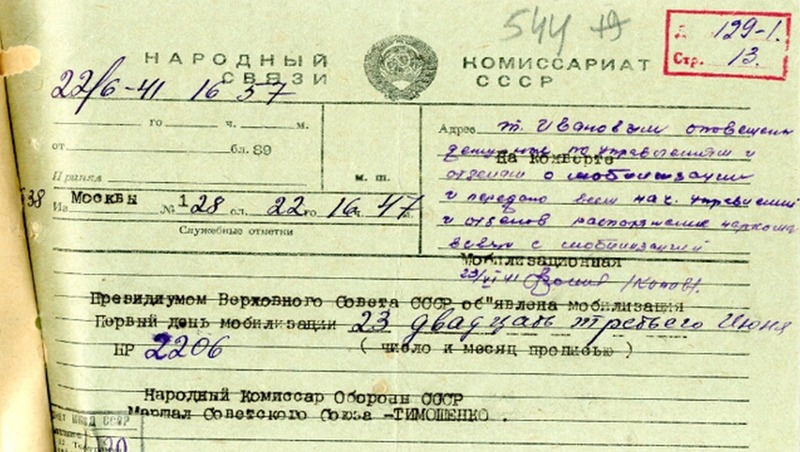 544
129-1.
Стр. 13.
НАРОДНЫЙ КОМИССАРИАТ
СВЯЗИ СССР
22/6-41 16 57
го ч. м.
от бл. 89
Принял м. т.
Адрес т. Ивановым оповещены
На конверте
отделам о мобилизации
и передано всем нач. управлений
и отделов распоряжение наркома
связи с мобилизацией
38 Из Москвы № 128 сл. 22 го 16 ч. 47 м.
Служебные отметки
Мобилизационная
Президиумом Верховного Совета СССР об"явлена мобилизация
Первый день мобилизации 23 двадцать третьего Июня
НР 2206 (число и месяц прописью)
Народный Комиссар Обороны СССР
Маршал Советского Союза -ТИМОШЕНКО .